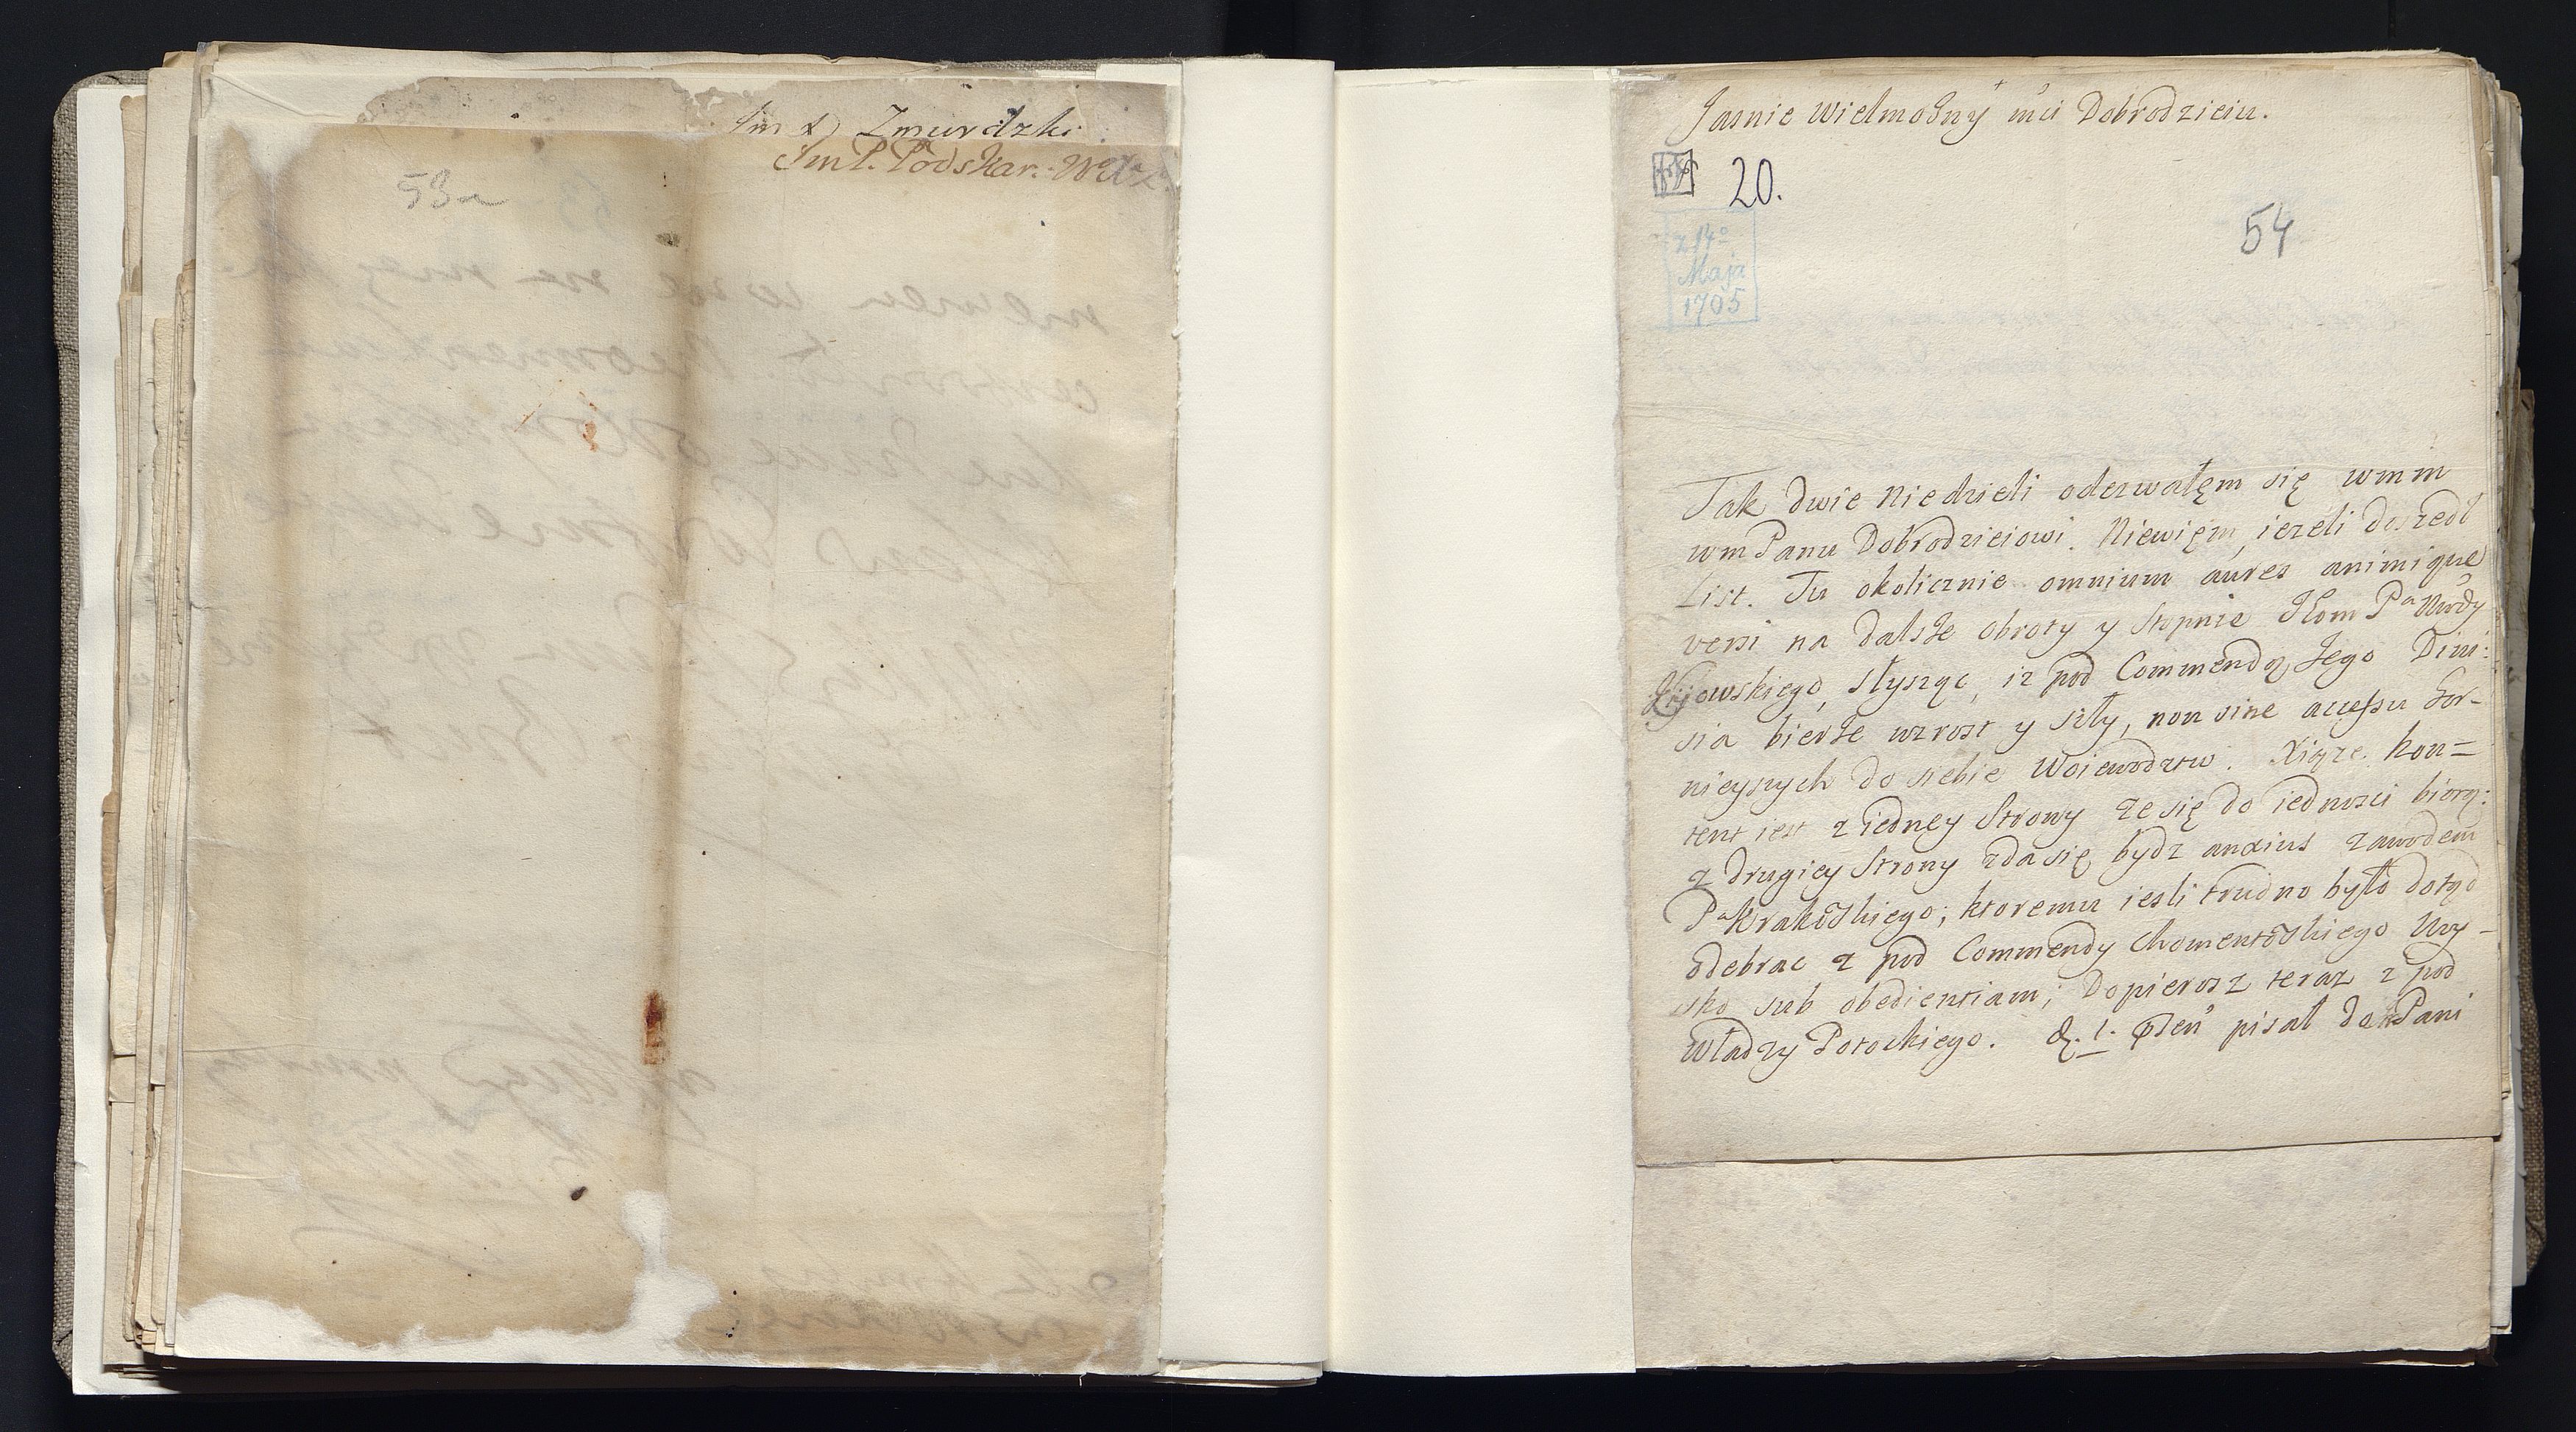 Im X Zmurdzki
Im P. Podskar: Wdx:
53a
Jasnie Wielmozny mci Dobrodzieiu.
20.
z 14o
Maja
1705
54
Tak dwie Niedzieli odezwałęm się wmm
wm Panu Dobrodzieiowi. Niewięm, iezeli doszedł
List. Tu okolicznie omnium aures animique
versi na dalsze obroty y Stopnie JEom Pa Wwdy
Kijowskiego, słysząc, iz pod Commendą Jego Diwi:
sia bierze wzrost y siły, non sine accessu Gor-
nieyszych do siebie Woiewodztw. Xiąze kon=
tent iest z iedney Strony ze się do iednosci biorą:
z drugiey Strony zda się bydz anxius zawodem
Pa Krakoskiego; ktoremu iesli trudno było dotąd
odebrac z pod Commendy Chomentoskiego Woy-
sko sub obedientiam; Dopierosz teraz z pod
władzy Potockiego. pisał do Pani